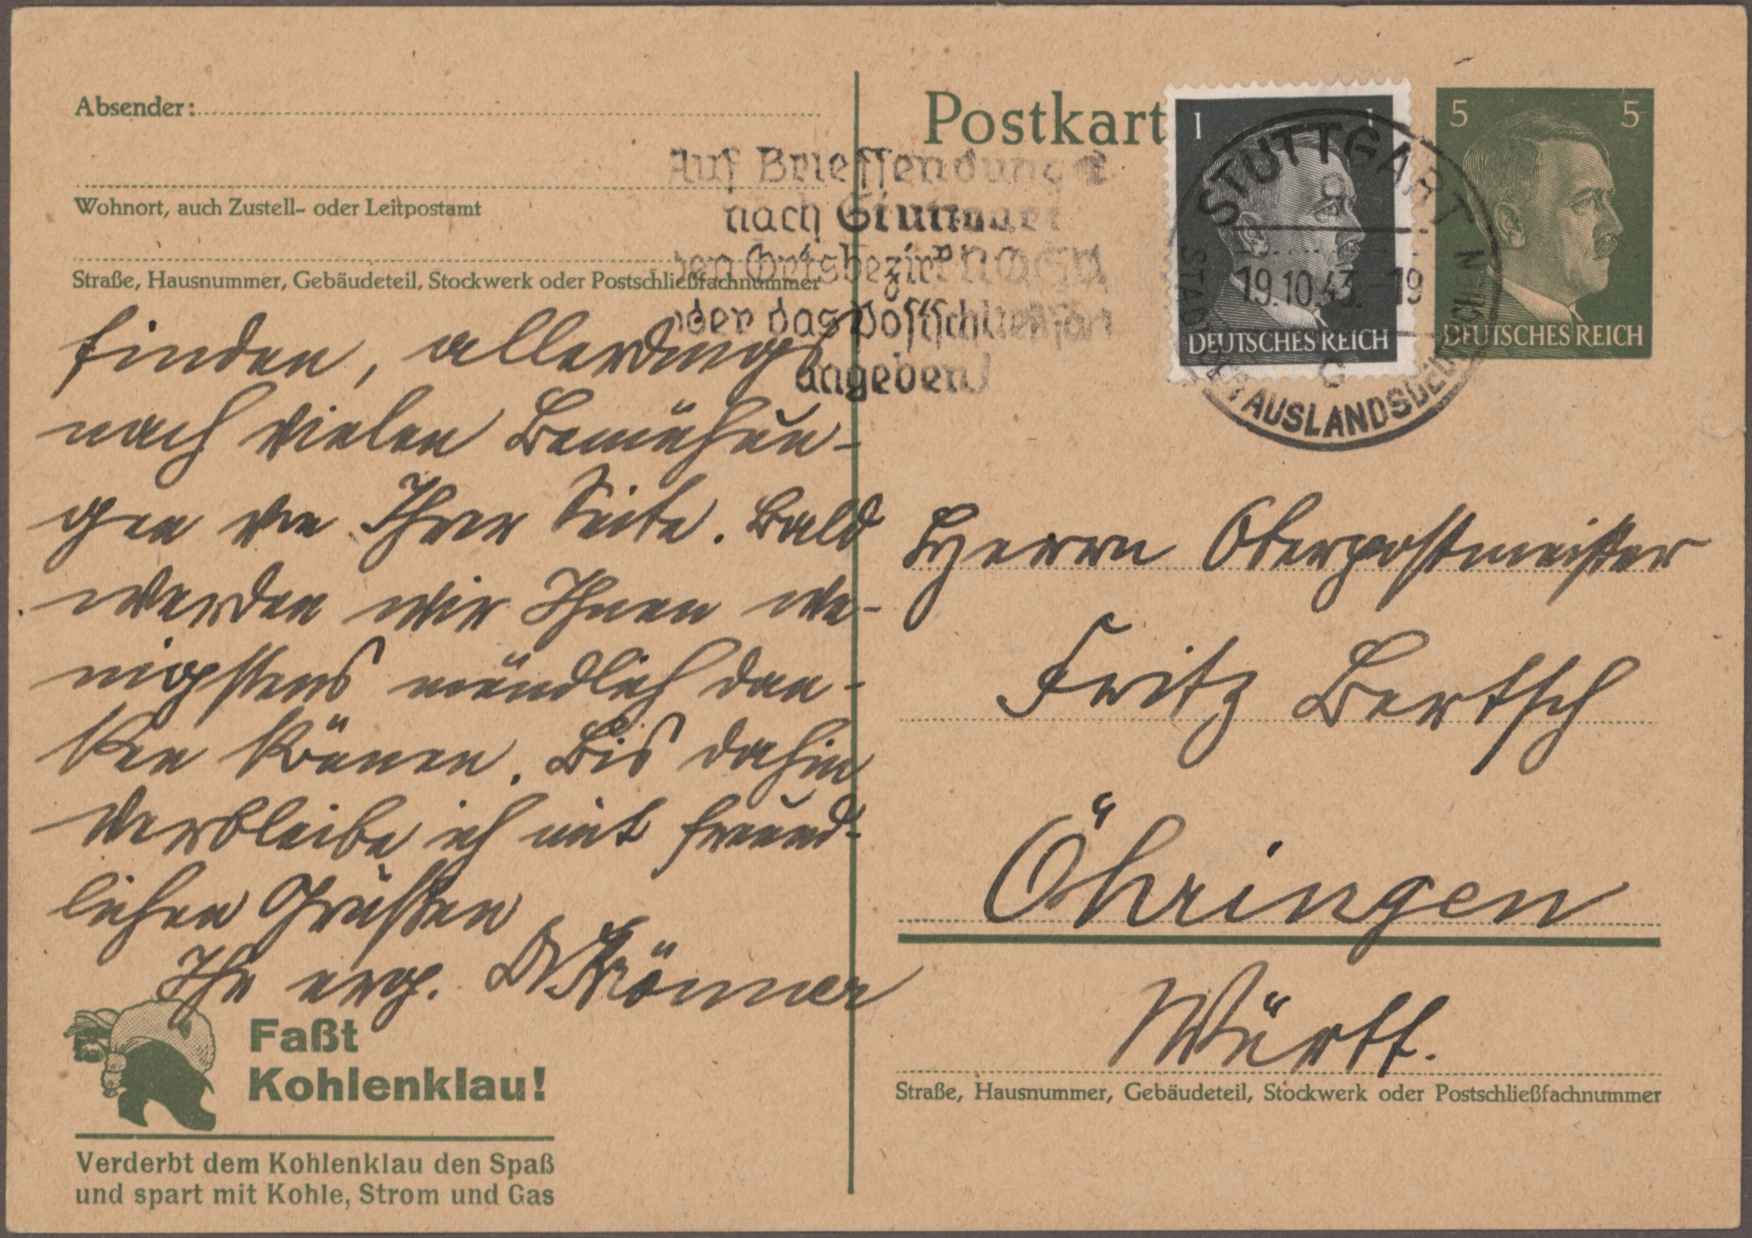 Absender:
Wohnort, auch Zustell- oder Leitpostamt
Straße, Hausnummer, Gebäudeteil, Stockwerk oder Postschließfachnummer
finden, allerdings
nach vielen Bemühun-
gen von Ihrer Seite. Bald
werden wir Ihnen we-
nigstens mündlich dan-
ken können. Bis dahin
verbleibe ich mit freund-
lichen Grüßen
Ihr erg.
Faßt
Kohlenklau!
Verderbt dem Kohlenklau den Spaß
und spart mit Kohle, Strom und Gas
Postkart
Auf Briefsendungen
nach Stuttgart
den Ortsbezirk NOSW
oder das Postschließfach
angeben!
1 1
DEUTSCHES REICH
5 5
DEUTSCHES REICH
STUTTGART
9
19.10.43.-19
STADT DER AUSLANDSDEUTSCHEN
Herrn Oberpostmeister
Fritz Bertsch
Öhringen
Württ.
Straße, Hausnummer, Gebäudeteil, Stockwerk oder Postschließfachnummer